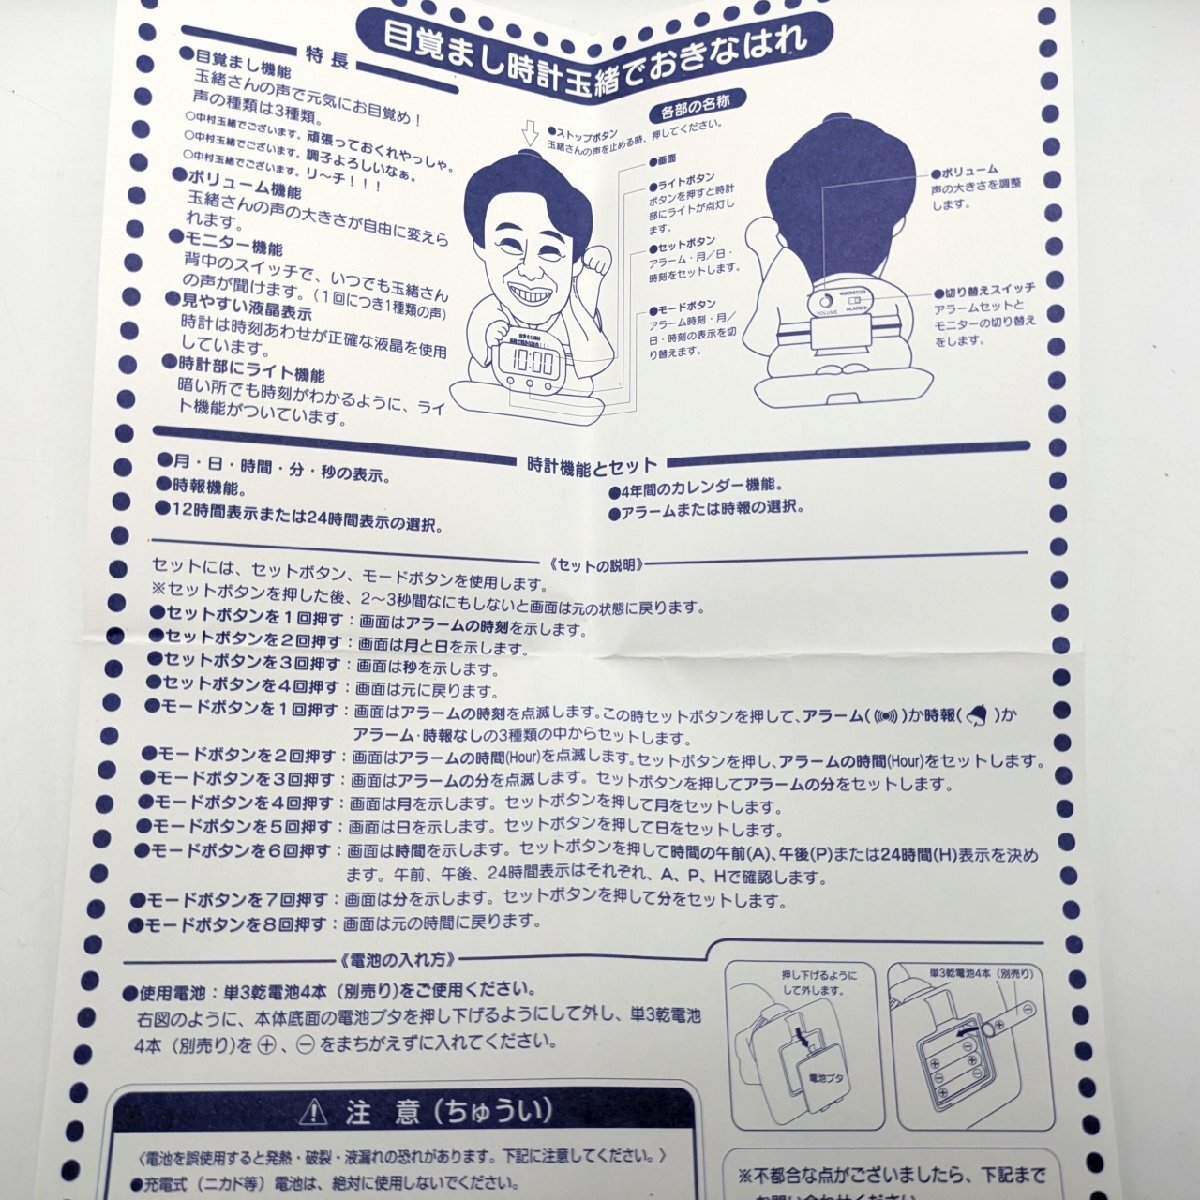 目覚まし時計玉緒でおきなはれ
特長
●目覚まし機能
玉緒さんの声で元気にお目覚め！
声の種類は3種類。
○中村玉緒でございます。頑張っておくれやっしゃ。
○中村玉緒でございます。調子よろしいなぁ。
○中村玉緒でございます。リ〜チ！！！
●ボリューム機能
玉緒さんの声の大きさが自由に変えら
れます。
●モニター機能
背中のスイッチで、いつでも玉緒さん
の声が聞けます。(１回につき１種類の声)
●見やすい液晶表示
時計は時刻あわせが正確な液晶を使用
しています。
●時計部にライト機能
暗い所でも時刻がわかるように、ライ
ト機能がついています。
各部の名称
●ストップボタン
玉緒さんの声を止める時、押してください。
●画面
●ライトボタン
ボタンを押すと時計
部にライトが点灯し
ます。
●セットボタン
アラーム・月／日・
時刻をセットします。
●モードボタン
アラーム時刻・月／
日・時刻の表示を切
り替えます。
10:00
●ボリューム
声の大きさを調整
します。
●切り替えスイッチ
アラームセットと
モニターの切り替え
をします。
VOLUME
時計機能とセット
●月・日・時間・分・秒の表示。
●時報機能。
●12時間表示または24時間表示の選択。
●4年間のカレンダー機能。
●アラームまたは時報の選択。
《セットの説明》
セットには、セットボタン、モードボタンを使用します。
※セットボタンを押した後、2〜3秒間なにもしないと画面は元の状態に戻ります。
●セットボタンを１回押す：画面はアラームの時刻を示します。
●セットボタンを２回押す：画面は月と日を示します。
●セットボタンを３回押す：画面は秒を示します。
●セットボタンを４回押す：画面は元に戻ります。
●モードボタンを１回押す：画面はアラームの時刻を点滅します。この時セットボタンを押して、アラーム( )か時報( )か
アラーム・時報なしの3種類の中からセットします。
●モードボタンを２回押す：画面はアラームの時間(Hour)を点滅します。セットボタンを押し、アラームの時間(Hour)をセットします。
●モードボタンを３回押す：画面はアラームの分を点滅します。セットボタンを押してアラームの分をセットします。
●モードボタンを４回押す：画面は月を示します。セットボタンを押して月をセットします。
●モードボタンを５回押す：画面は日を示します。セットボタンを押して日をセットします。
●モードボタンを６回押す：画面は時間を示します。セットボタンを押して時間の午前(A)、午後(P)または24時間(H)表示を決め
ます。午前、午後、24時間表示はそれぞれ、A、P、Hで確認します。
●モードボタンを７回押す：画面は分を示します。セットボタンを押して分をセットします。
●モードボタンを８回押す：画面は元の時間に戻ります。
《電池の入れ方》
●使用電池：単3乾電池4本（別売り)をご使用ください。
右図のように、本体底面の電池ブタを押し下げるようにして外し、単3乾電池
4本（別売り)を⊕、⊖をまちがえずに入れてください。
押し下げるように
して外します。
電池ブタ
単3乾電池4本（別売り）
⚠ 注 意（ちゅうい）
〈電池を誤使用すると発熱・破裂・液漏れの恐れがあります。下記に注意してください。〉
●充電式（ニカド等）電池は、絶対に使用しないでください。
※不都合な点がございましたら、下記まで
お問い合わせください。